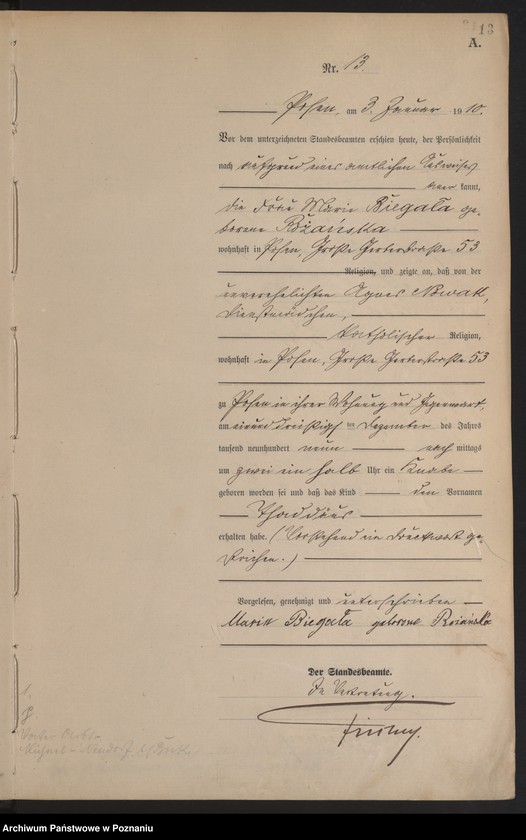 13
A.
Nr. 13.
Posen, am 3. Januar 1910.
Vor dem unterzeichneten Standesbeamten erschien heute, der Persönlichkeit
nach auf Grund eines amtlichen Ausweises
aner kannt,
die Frau Marie Biegała ge-
borene
wohnhaft in Posen, Große Gerberstraße 53
Religion, und zeigte an, daß von der
unverehelichten Agnes Nowak,
Dienstmädchen,
katholischer Religion,
wohnhaft in Posen, Große Gerberstraße 53
zu Posen in ihrer Wohnung und Gegenwart,
am einunddreißigsten Dezember des Jahres
tausend neunhundert neun nach mittags
um zwei ein halb Uhr ein Knabe
geboren worden sei und daß das Kind den Vornamen
Thaddäus
erhalten habe. (Vorstehend ein Druckwort ge-
strichen.)
Vorgelesen, genehmigt und unterschrieben
Marie Biegała geborene
Der Standesbeamte.
In Vertretung.
Archiwum Państwowe w Poznaniu